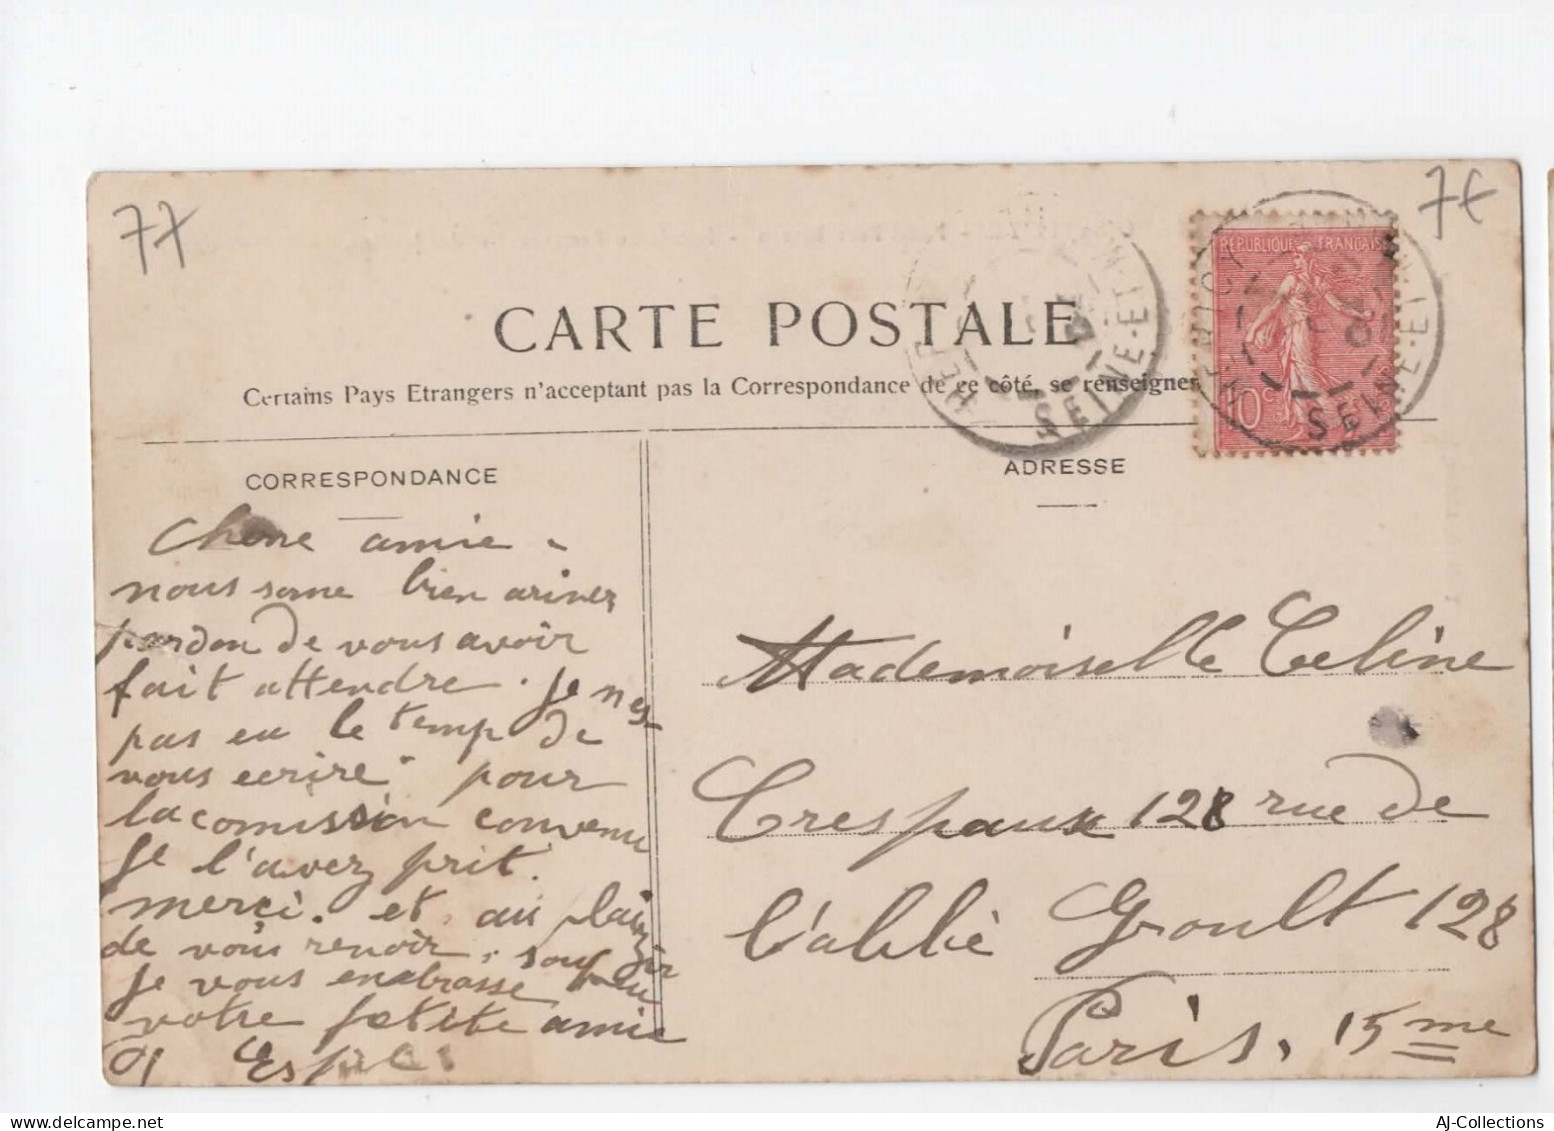 77
7€
CARTE POSTALE
Certains Pays Etrangers n'acceptant pas la Correspondance de ce côté, se renseigner
REPUBLIQUE FRANCAISE
10 c
HERICY
SEINE-ET-M
SEINE-ET-M
CORRESPONDANCE
ADRESSE
Chere amie
nous some bien ariver
pardon de vous avoir
fait attendre. Je nes
pas eu le temp de
vous ecrire pour
la comission convenu
Je l'avez prit.
merci. et au plaizir
de vous renoir, soup
Je vous enabrasse
votre petite amie
Mademoiselle Celine
Crespaux 128 rue de
l'abbé Groult 128
Paris. 15me
AJ-Collections